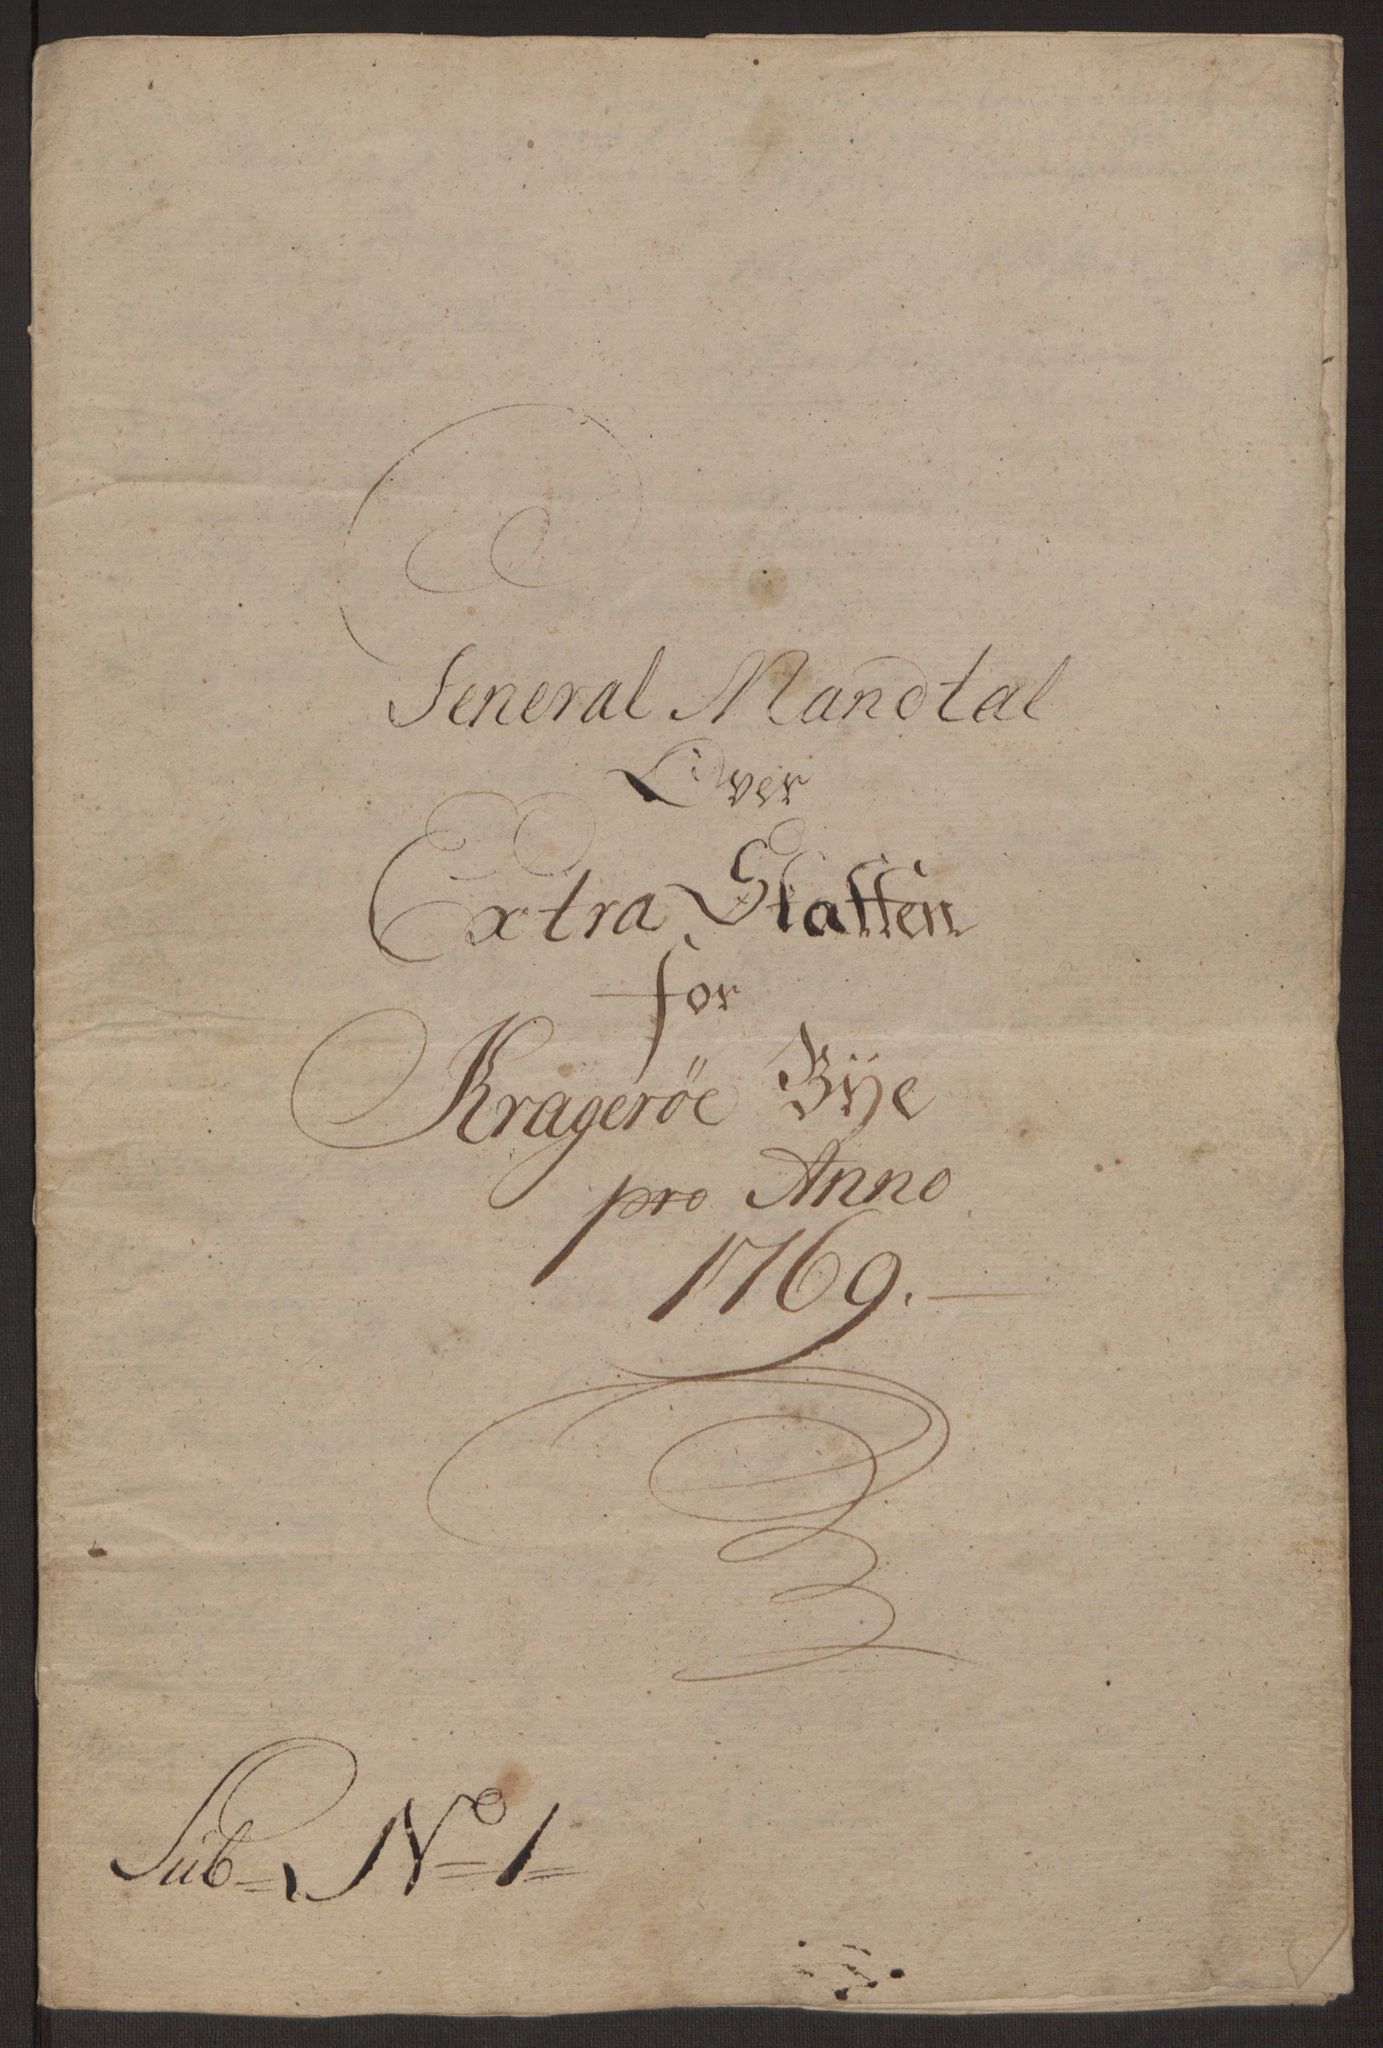 General Mandtal
Over
Extra Skatten
for
Kragerøe Bÿe
pro Anno
1769.
Sub No 1